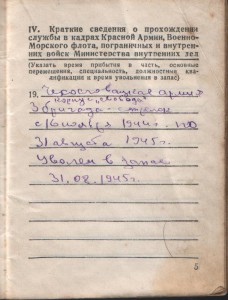 IV. Краткие сведения о прохождении
службы в кадрах Красной Армии, Военно-
Морского флота, пограничных и внутрен-
них войск Министерства внутренних дел
(Указать время прибытия в часть, основные
перемещения, специальность, должностная ква-
лификация к время увольнения в запас)
19. армия
3 бригада
с 1944 г. по
31 августа 1945 г.
Уволен в запас
31.08.1945 г.
5